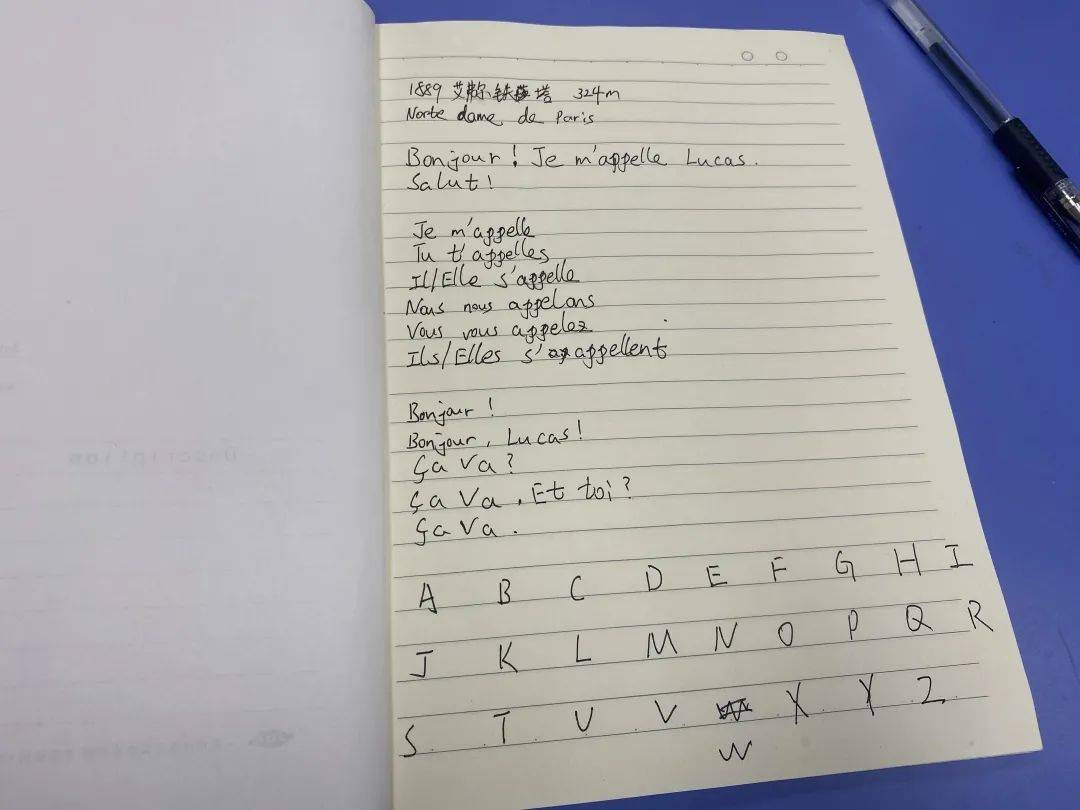 1889 艾菲尔铁塔 324m
Norte dame de Paris
Bonjour! Je m'appelle Lucas.
Salut!
Je m'appelle
Tu t'appelles
Il/Elle s'appelle
Nous nous appelons
Vous vous appelez
Ils/Elles s'appellent
Bonjour!
Bonjour, Lucas!
Ça Va?
Ça Va. Et toi?
Ça Va.
A B C D E F G H I
J K L M N O P Q R
S T U V X Y Z
W
Description